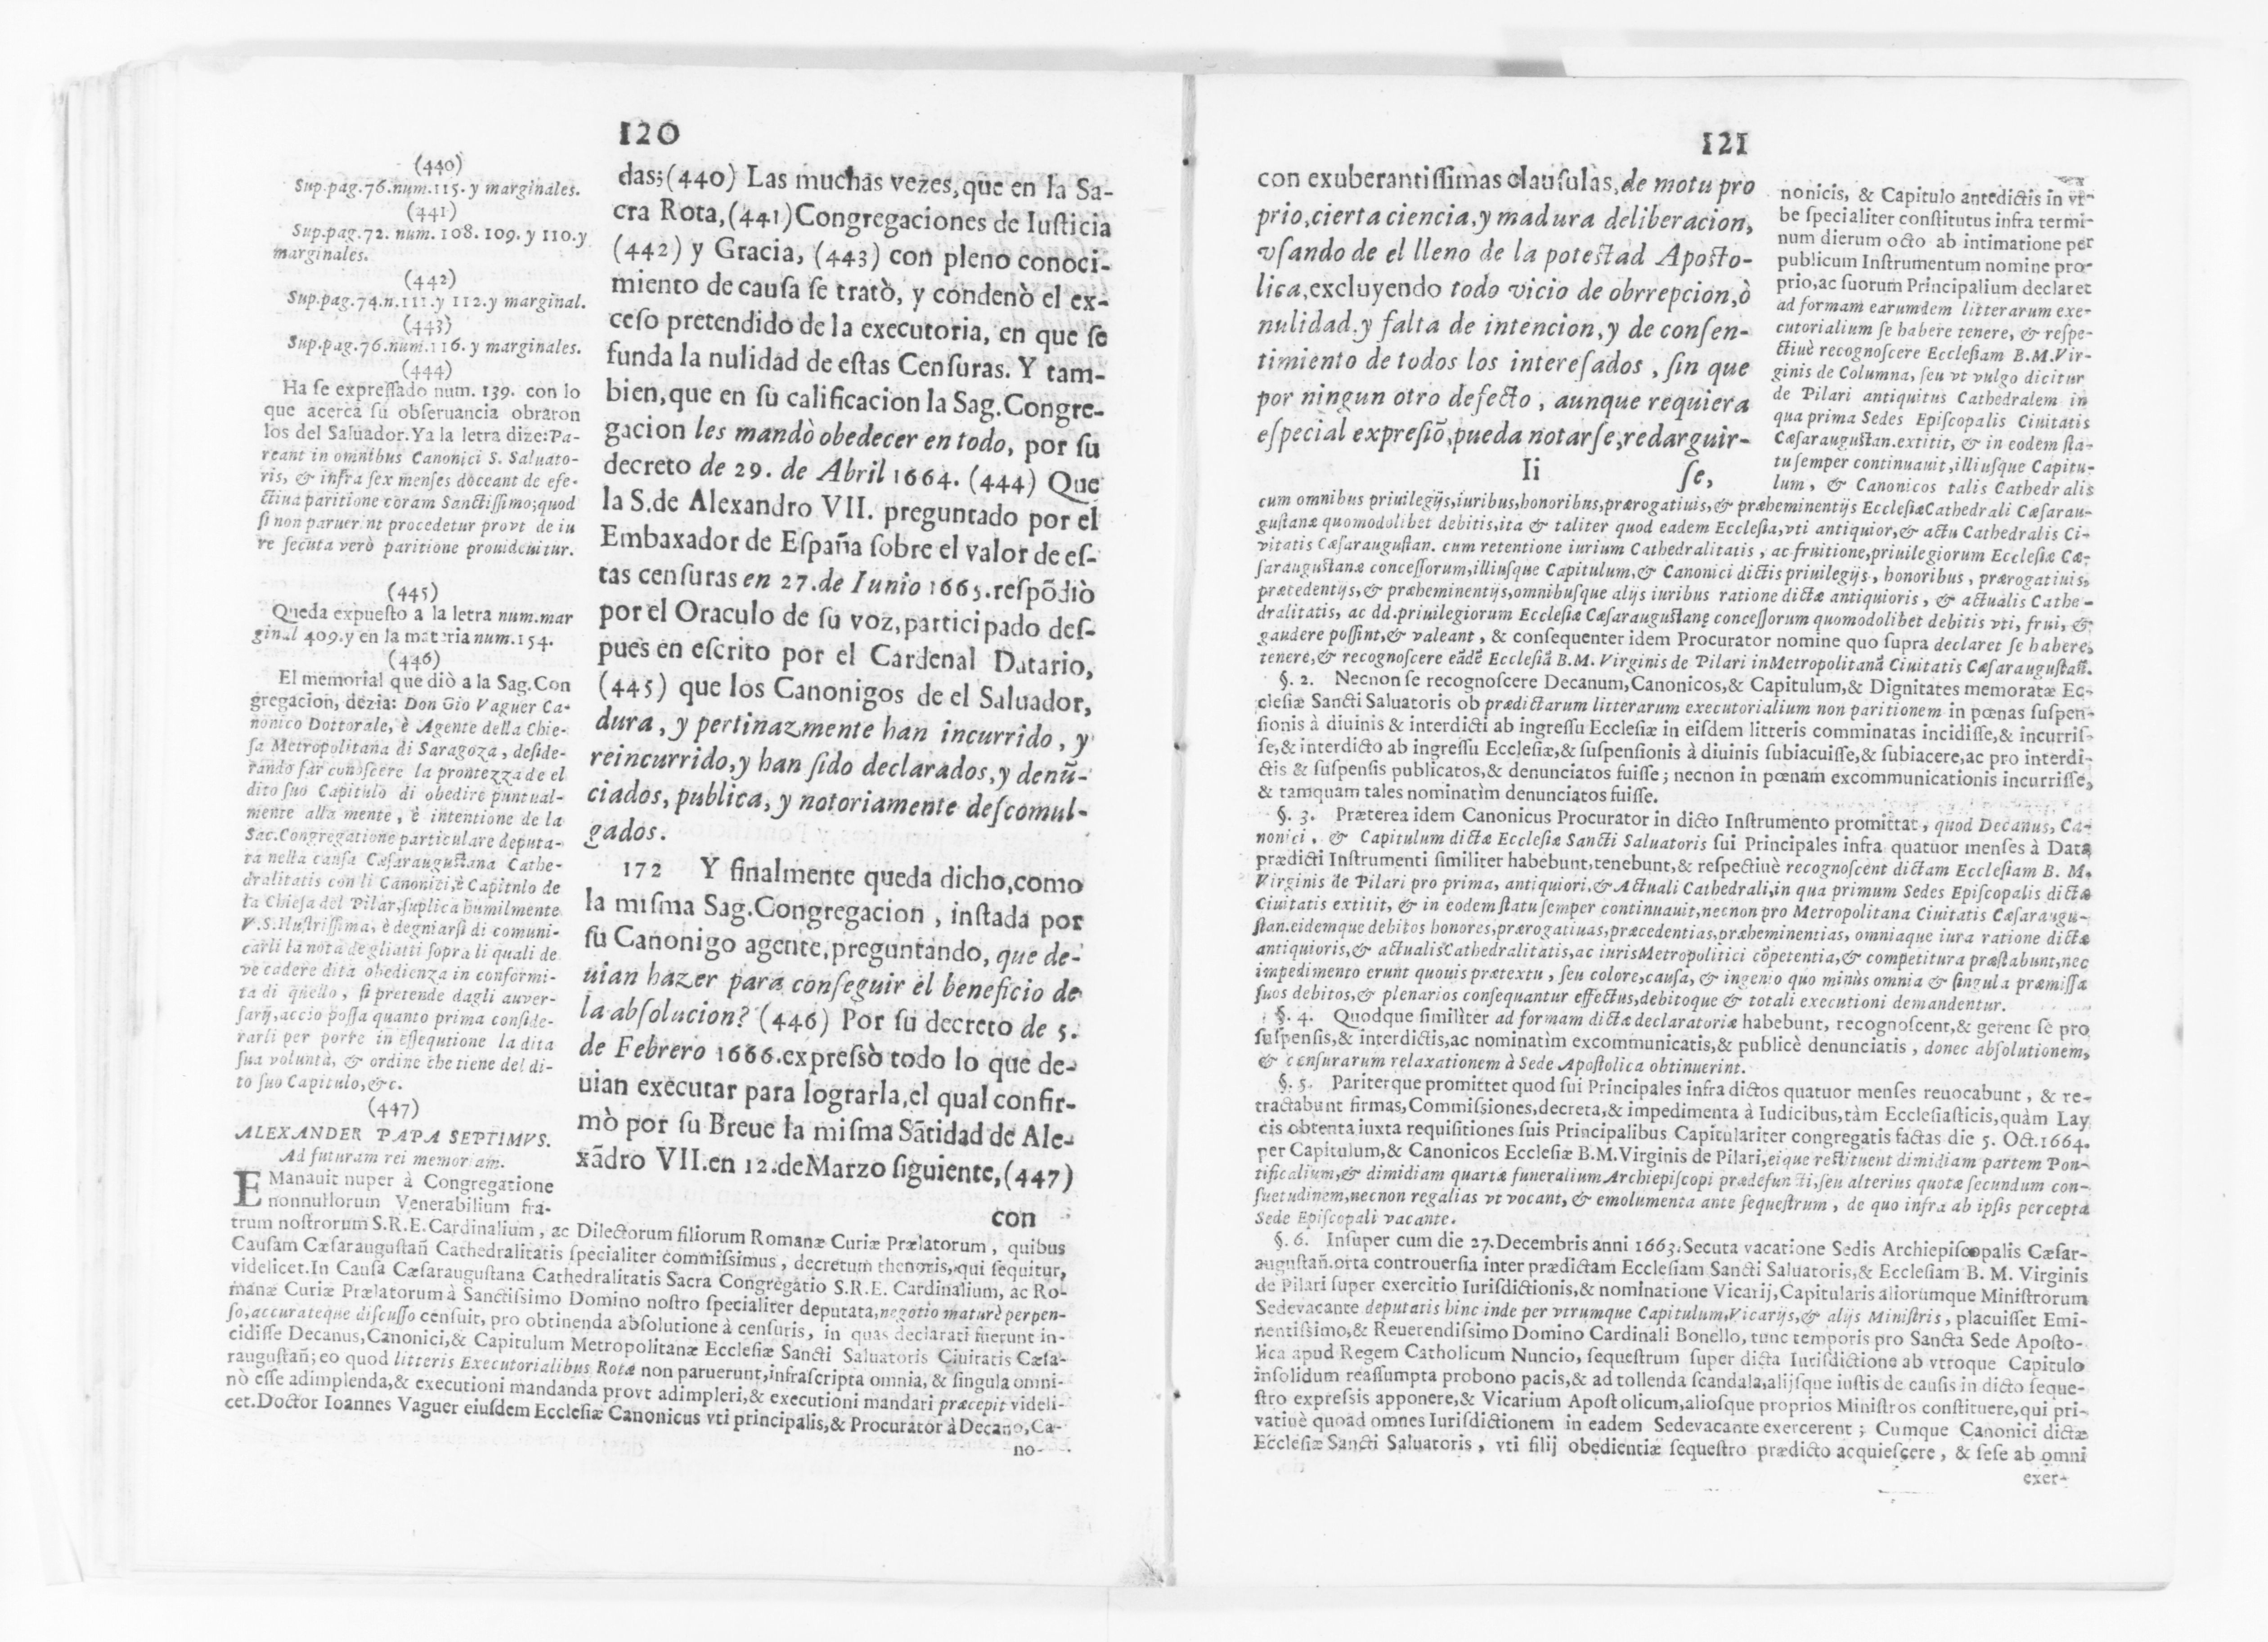 120
(440)
Sup.pag.76.num.115. y marginales.
(441)
Sup.pag.72. num. 108. 109. y 110.y
marginales.
(442)
Sup.pag.74.n.111.y 112.y marginal.
(443)
Sup.pag.76.num.116. y marginales.
(444)
Ha se expressado num. 139. con lo
que acerca su obseruancia obraron
los del Saluador. Ya la letra dize: Pa-
reant in omnibus Canonici S. Saluato-
ris, & infra sex menses doceant de efe-
ctiua paritione coram Sanctissimo; quod
si non paruerint procedetur provt de iu
re secuta verò paritione prouidebitur.
(445)
Queda expuesto a la letra num.mar
ginal 409.y en la materia num.154.
(446)
El memorial que diò a la Sag.Con
gregacion, dezia: Don Gio Vaguer Ca-
nonico Dottorale, è Agente della Chie-
sa Metropolitana di Saragoza, deside-
rando far conoscere la prontezza de el
dito suo Capitulo di obedire puntual-
mente alla mente, è intentione de la
Sac.Congregatione particulare deputa-
ta nella causa Cæsaraugustana Cathe-
dralitatis con li Canonici,è Capitnlo de
la Chiesa del Pilar, suplica humilmente
V.S.Illustrissima, è degniarsi di comuni-
carli la nota de gliatti sopra li quali de
ve cadere dita obedienza in conformi-
ta di quello, si pretende dagli auver-
sarij, accio possa quanto prima conside-
rarli per porre in essequtione la dita
sua voluntà, & ordine che tiene del di-
to suo Capitulo,&c.
(447)
ALEXANDER PAPA SEPTIMVS.
Ad futuram rei memoriam.
EManauit nuper à Congregatione
nonnullorum Venerabilium fra-
das;(440) Las muchas vezes,que en la Sa-
cra Rota,(441)Congregaciones de Iusticia
(442) y Gracia, (443) con pleno conoci-
miento de causa se tratò, y condenò el ex-
ceso pretendido de la executoria, en que se
funda la nulidad de estas Censuras. Y tam-
bien, que en su calificacion la Sag.Congre-
gacion les mandò obedecer en todo, por su
decreto de 29. de Abril 1664. (444) Que
la S.de Alexandro VII. preguntado por el
Embaxador de España sobre el valor de es-
tas censuras en 27.de Iunio 1665.respõdiò
por el Oraculo de su voz, participado des-
pues en escrito por el Cardenal Datario,
(445) que los Canonigos de el Saluador,
dura, y pertinazmente han incurrido, y
reincurrido, y han sido declarados, y denũ-
ciados, publica, y notoriamente descomul-
gados.
172 Y finalmente queda dicho,como
la misma Sag.Congregacion, instada por
su Canonigo agente, preguntando, que de-
uian hazer para conseguir el beneficio de
la absolucion? (446) Por su decreto de 5.
de Febrero 1666.expressò todo lo que de-
uian executar para lograrla,el qual confir-
mò por su Breue la misma Sãtidad de Ale-
xãdro VII.en 12.de Marzo siguiente,(447)
con
trum nostrorum S.R.E.Cardinalium, ac Dilectorum filiorum Romanæ Curiæ Prælatorum, quibus
Causam Cæsaraugustañ Cathedralitatis specialiter commissimus, decretum thenoris, qui sequitur,
videlicet. In Causa Cæsaraugustana Cathedralitatis Sacra Congregatio S.R.E. Cardinalium, ac Ro-
manæ Curiæ Prælatorum à Sanctissimo Domino nostro specialiter deputata, negotio maturè perpen-
so, accurateque discusso censuit, pro obtinenda absolutione à censuris, in quas declarati fuerunt in-
cidisse Decanus,Canonici,& Capitulum Metropolitanæ Ecclesiæ Sancti Saluatoris Ciuitatis Cæsa-
raugustañ; eo quod litteris Executorialibus Rotæ non paruerunt,infrascripta omnia, & singula omni-
nò esse adimplenda,& executioni mandanda provt adimpleri,& executioni mandari præcepit videli-
cet.Doctor Ioannes Vaguer eiusdem Ecclesiæ Canonicus vti principalis,& Procurator à Decano,Ca-
no-
121
con exuberantissimas clausulas, de motu pro
prio, cierta ciencia, y madura deliberacion,
vsando de el lleno de la potestad Aposto-
lica, excluyendo todo vicio de obrrepcion, ò
nulidad, y falta de intencion, y de consen-
timiento de todos los interesados, sin que
por ningun otro defecto, aunque requiera
especial expresiõ, pueda notarse, redarguir-
Ii se,
nonicis, & Capitulo antedictis in vr-
be specialiter constitutus infra termi-
num dierum octo ab intimatione per
publicum Instrumentum nomine pro-
prio,ac suorum Principalium declaret
ad formam earumdem litterarum exe-
cutorialium se habere tenere, & respe-
ctiuè recognoscere Ecclesiam B.M.Vir-
ginis de Columna, seu vt vulgo dicitur
de Pilari antiquitus Cathedralem in
qua prima Sedes Episcopalis Ciuitatis
Cæsaraugustan.extitit, & in eodem sta-
tu semper continuauit, illiusque Capitu-
lum, & Canonicos talis Cathedralis
cum omnibus priuilegijs,iuribus,honoribus,prærogatiuis,& præheminentijs EcclesiæCathedrali Cæsarau-
gustanæ quomodolibet debitis,ita & taliter quod eadem Ecclesia,vti antiquior,& actu Cathedralis Ci-
vitatis Cæsaraugustan. cum retentione iurium Cathedralitatis, ac fruitione,priuilegiorum Ecclesiæ Cæ-
saraugustanæ concessorum,illiusque Capitulum,& Canonici dictis priuilegijs, honoribus, prærogatiuis,
præcedentijs,& præheminentijs,omnibusque alijs iuribus ratione dictæ antiquioris, & actualis Cathe-
dralitatis, ac dd.priuilegiorum Ecclesiæ Cæsaraugustanę concessorum quomodolibet debitis vti, frui, &
gaudere possint,& valeant, & consequenter idem Procurator nomine quo supra declaret se habere,
tenere,& recognoscere eãdẽ Ecclesiã B.M. Virginis de Pilari inMetropolitanã Ciuitatis Cæsaraugustañ.
§. 2. Necnon se recognoscere Decanum,Canonicos,& Capitulum,& Dignitates memoratæ Ec-
clesiæ Sancti Saluatoris ob prædictarum litterarum executorialium non paritionem in pœnas suspen-
sionis à diuinis & interdicti ab ingressu Ecclesiæ in eisdem litteris comminatas incidisse,& incurris-
se,& interdicto ab ingressu Ecclesiæ,& suspensionis à diuinis subiacuisse,& subiacere,ac pro interdi-
ctis & suspensis publicatos,& denunciatos fuisse; necnon in pœnam excommunicationis incurrisse,
& tamquam tales nominatìm denunciatos fuisse.
§. 3. Præterea idem Canonicus Procurator in dicto Instrumento promittat, quod Decanus, Ca-
nonici, & Capitulum dictæ Ecclesiæ Sancti Saluatoris sui Principales infra quatuor menses à Data
prædicti Instrumenti similiter habebunt,tenebunt,& respectiuè recognoscent dictam Ecclesiam B. M.
Virginis de Pilari pro prima, antiquiori,& Actuali Cathedrali,in qua primum Sedes Episcopalis dictæ
Ciuitatis extitit, & in eodem statu semper continuauit,necnon pro Metropolitana Ciuitatis Cæsaraugu-
stan.eidemque debitos honores,prærogatiuas,præcedentias,præheminentias, omniaque iura ratione dictæ
antiquioris,& actualisCathedralitatis,ac iurisMetropolitici cõpetentia,& competitura præstabunt,nec
impedimento erunt quouis prætextu, seu colore,causa, & ingenio quo minùs omnia & singula præmissa
suos debitos,& plenarios consequantur effectus,debitoque & totali executioni demandentur.
§. 4. Quodque similiter ad formam dictæ declaratoriæ habebunt, recognoscent,& gerent se pro
suspensis,& interdictis,ac nominatìm excommunicatis,& publicè denunciatis, donec absolutionem,
& censurarum relaxationem à Sede Apostolica obtinuerint.
§. 5. Pariterque promittet quod sui Principales infra dictos quatuor menses reuocabunt, & re-
tractabunt firmas,Commissiones,decreta,& impedimenta à Iudicibus,tàm Ecclesiasticis,quàm Lay
cis obtenta iuxta requisitiones suis Principalibus Capitulariter congregatis factas die 5. Oct.1664.
per Capitulum,& Canonicos Ecclesiæ B.M.Virginis de Pilari,eique restituent dimidiam partem Pon-
tificalium,& dimidiam quartæ funeralium Archiepiscopi prædefuncti,seu alterius quotæ secundum con-
suetudinem,necnon regalias vt vocant, & emolumenta ante sequestrum, de quo infra ab ipsis percepta
Sede Episcopali vacante.
§. 6. Insuper cum die 27.Decembris anni 1663.Secuta vacatione Sedis Archiepiscopalis Cæsar-
augustañ.orta controuersia inter prædictam Ecclesiam Sancti Saluatoris,& Ecclesiam B. M. Virginis
de Pilari super exercitio Iurisdictionis,& nominatione Vicarij,Capitularis aliorumque Ministrorum
Sedevacante deputatis hinc inde per vtrumque Capitulum,Vicarijs,& alijs Ministris, placuisset Emi-
nentissimo,& Reuerendissimo Domino Cardinali Bonello, tunc temporis pro Sancta Sede Aposto-
lica apud Regem Catholicum Nuncio, sequestrum super dicta Iurisdictione ab vtroque Capitulo
insolidum reassumpta probono pacis,& ad tollenda scandala,alijsque iustis de causis in dicto seque-
stro expressis apponere,& Vicarium Apostolicum,aliosque proprios Ministros constituere,qui pri-
vatiuè quoad omnes Iurisdictionem in eadem Sedevacante exercerent; Cumque Canonici dictæ
Ecclesiæ Sancti Saluatoris, vti filij obedientiæ sequestro prædicto acquiescere, & sese ab omni
exer-